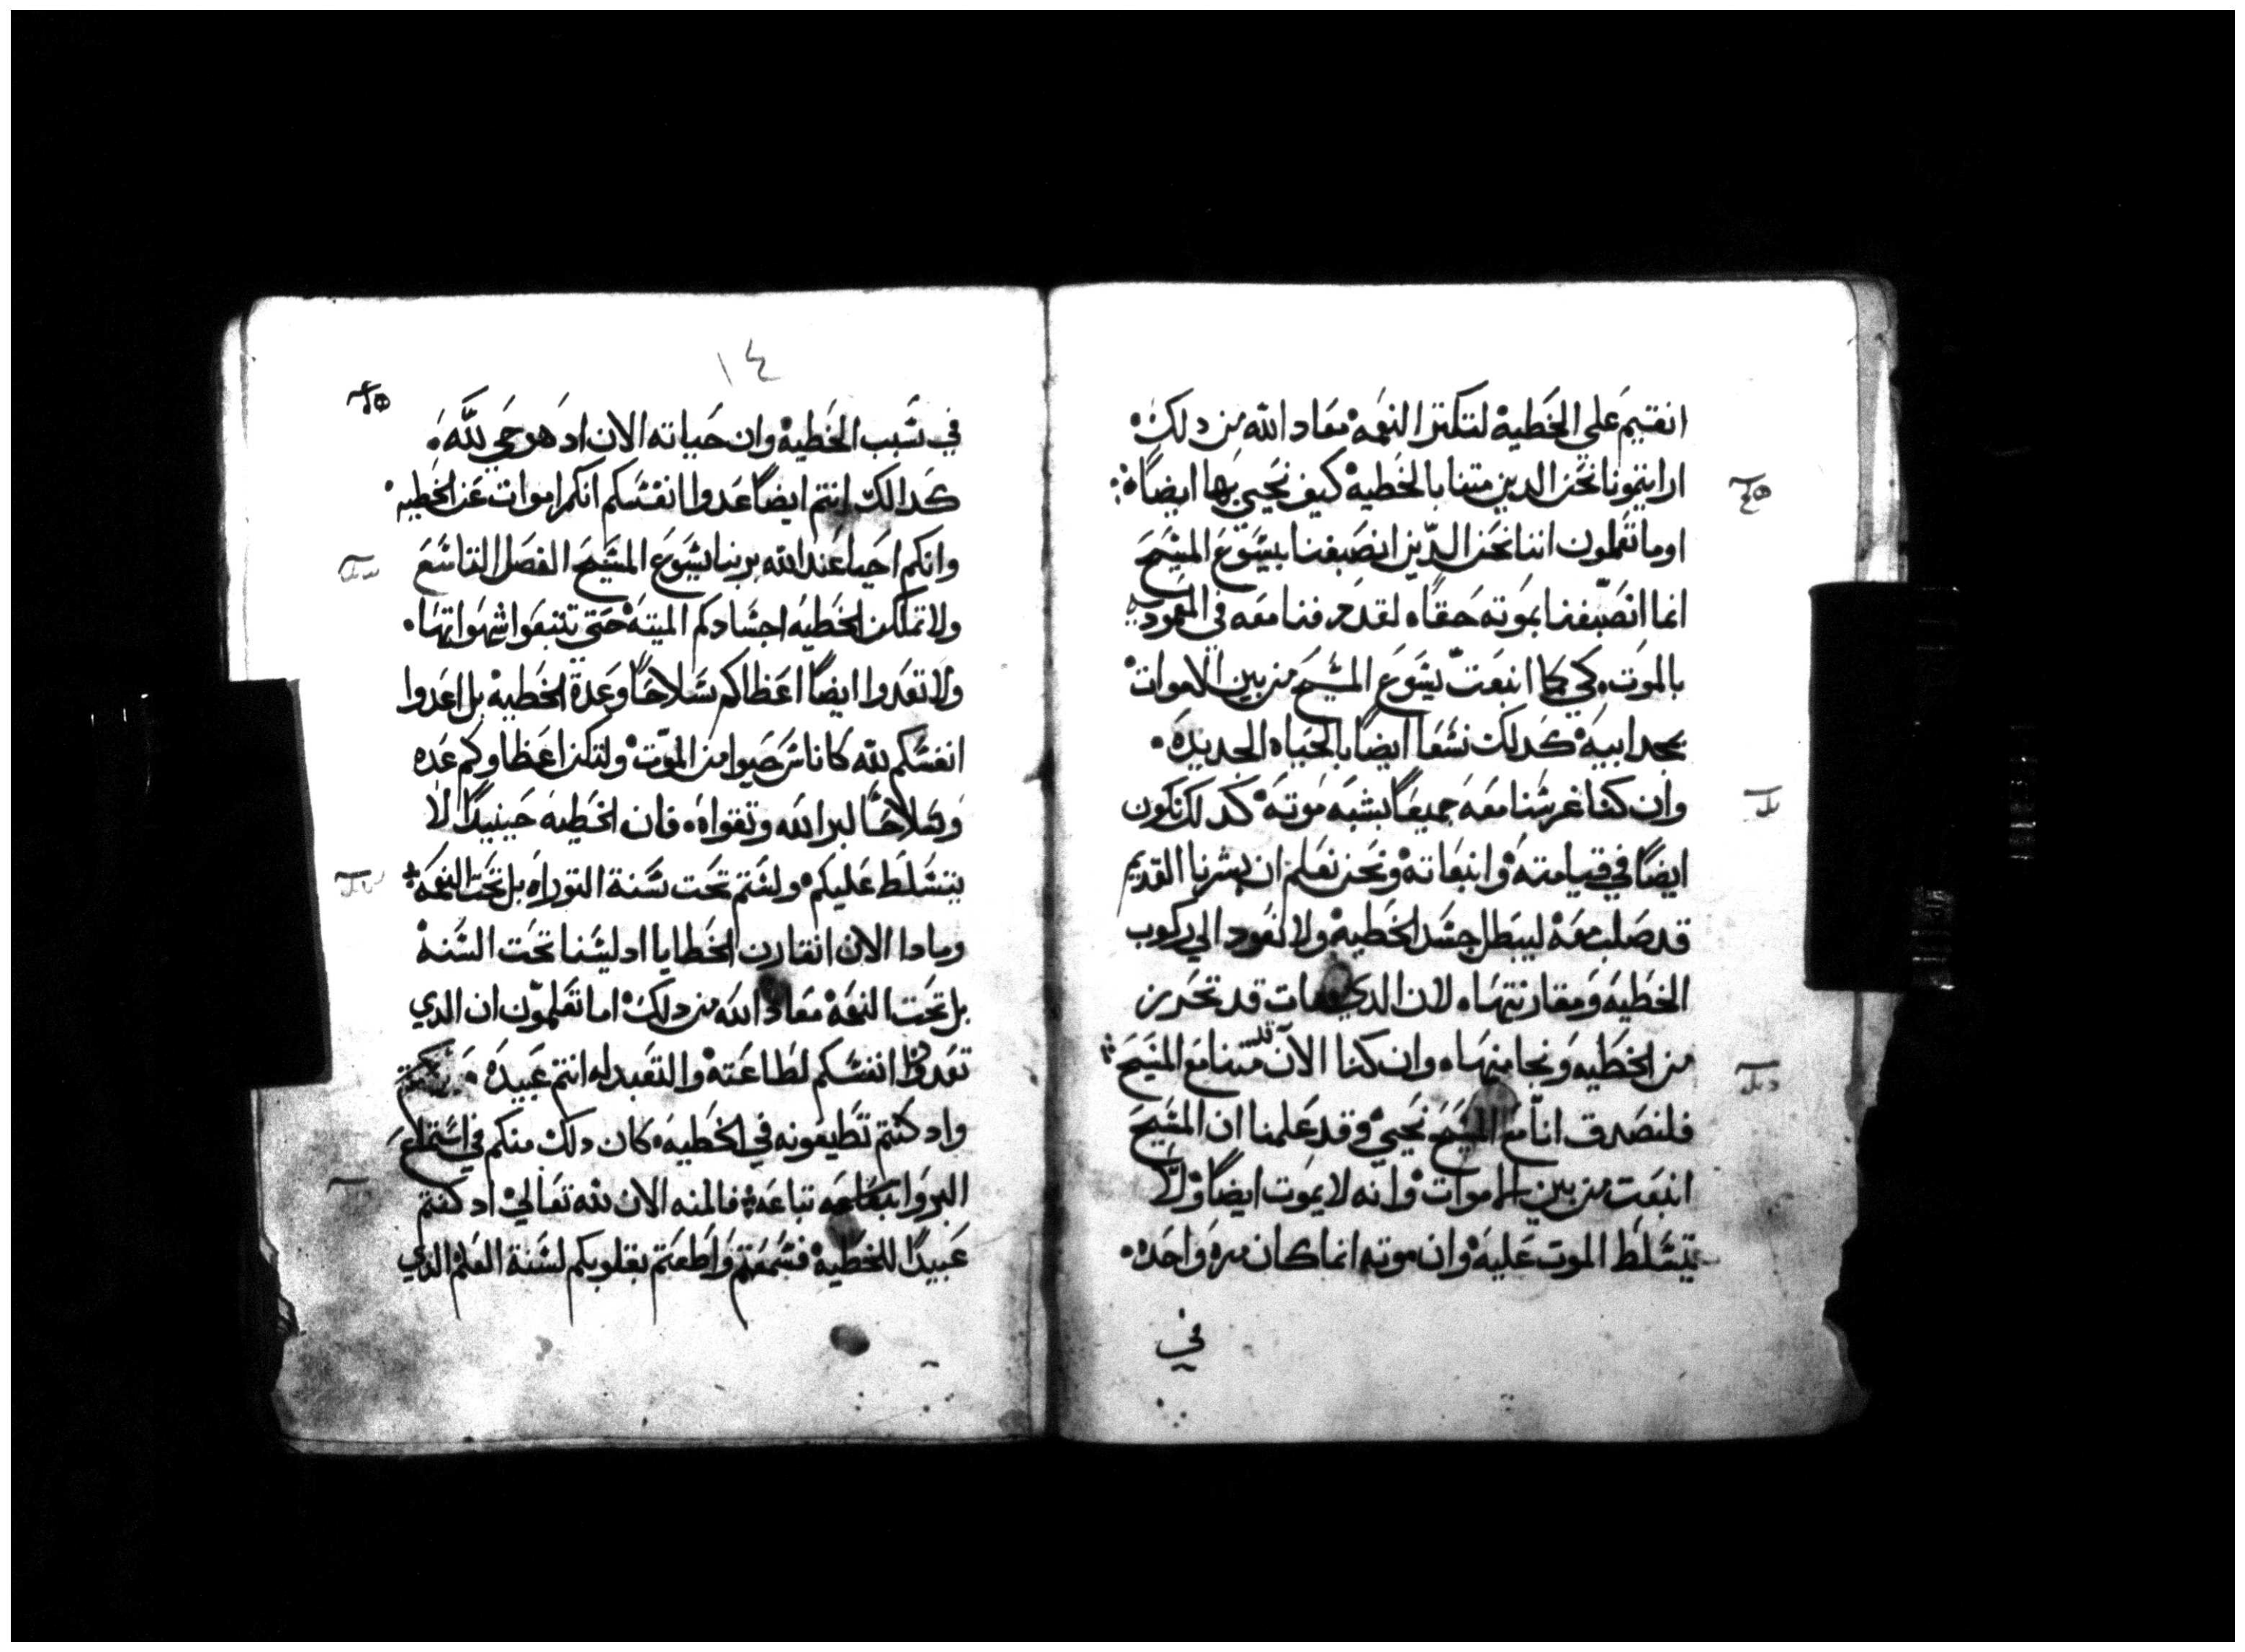 انقيم علي الخطيه لتكتر النعمه معاد الله من دلك
ارايتمونا نحن الدين متنا بالخطيه كيف نحيي بها ايضاً
اوما تعلمون اننا نحن الدين انصبغنا بيشوع المشيح
انما انصبغنا بموته حقاً لقد دفنا معه في المعموديه
بالموت كي كما انبعت يشوع المشيح من بين الاموات
بمجد ابيه كدلك نشعا ايضاً بالحياه الجديده
وان كنا غرشنا معه جميعاً بشبه موته كدلك نكون
ايضاً في قيامته وانبعاته ونحن نعلم ان بشرنا القديم
قد صلب معه ليبطل جشد الخطيه ولا نعود الي ركوب
الخطيه ومقارنتها لان الدي مات قد تحرر
من الخطيه ونجا منها وان كنا الان قد متنا مع المشيح
فلنصدق انا مع المشيح نحيي وقد علمنا ان المشيح
انبعت من بين الاموات وانه لا يموت ايضاً ولا
يتشلط الموت عليه وان موته انما كان مره واحده
في
١٤
في شبب الخطيه وان حياته الان اد هو حي لله
كدالك انتم ايضاً عدوا انفشكم انكم اموات عن الخطيه
وانكم احيا عند الله بربنا يشوع المشيح الفصل التاشع
ولا تملكن الخطيه اجشادكم الميته حتي تتبعوا شهواتها
ولا تعدوا ايضاً اعظاكم شلاحاً وعدة الخطيه بل اعدوا
انفشكم لله كاناش حيوا من الموت ولتكن اعظاوكم عده
وشلاحاً لبر الله وتقواه فان الخطيه حينيداً لا
يتشلط عليكم ولشتم تحت شنة التوراه بل تحت النعمه
ومادا الان انقارن الخطايا اد ليشنا تحت الشنه
بل تحت النعمه معاد الله من دلك اما تعلمون ان الدي
تعدوا انفشكم لطاعته والتعبد له انتم عبيده
واد كنتم تطيعونه في الخطيه كان دلك منكم في اشتماع
البر واتباعه تباعه فالمنه الان لله تعالي اد كنتم
عبيداً للخطيه فشمعتم واطعتم بقلوبكم لشنة العلم الدي